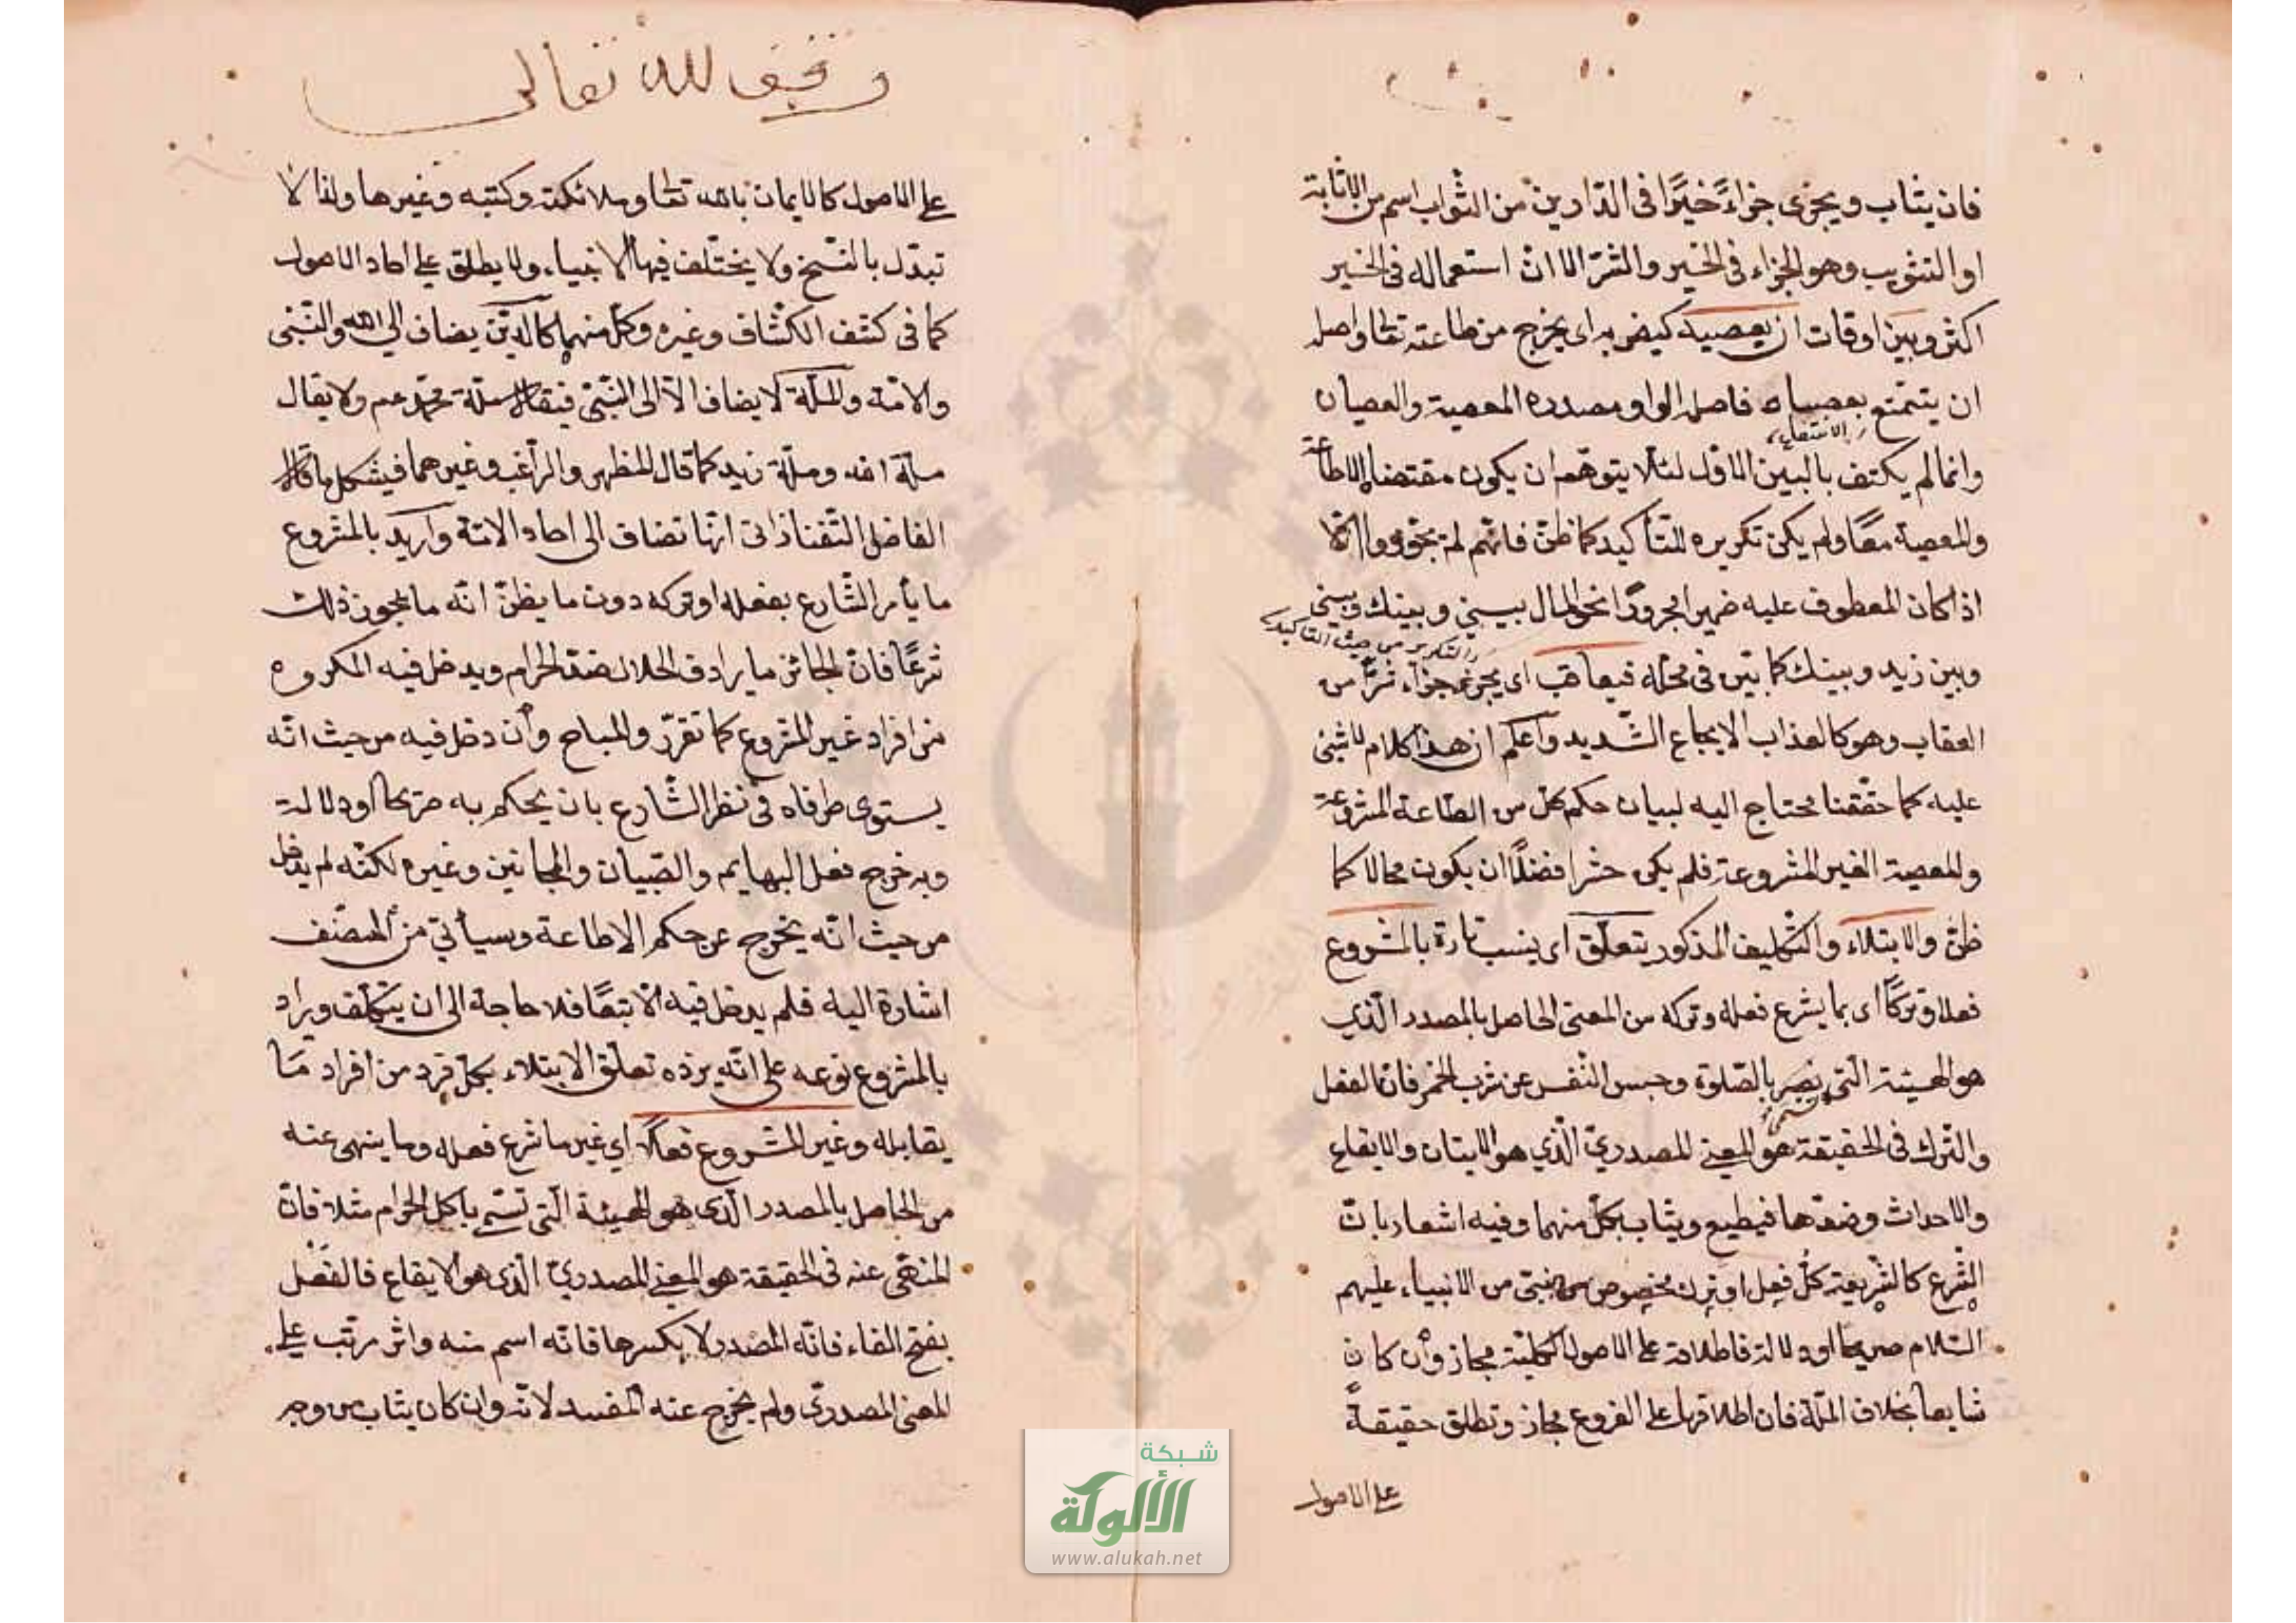 فان يثاب ويجزى جزاءً خيرًا فى الدارين من الثواب اسم من الاثابة
او التثويب وهو الجزاء فى الخير والشر الا ان استعماله فى الخير
اكثر وبين اوقات ان يعصيه كيضربه اى يخرج من طاعته تعالى واصله
ان يتمتع بعصياه فاصله الواو مصدره المعصية والعصيان
وانما لم يكتف بالبين الاول لئلا يتوهم ان يكون مقتضا الاطاعة
والمعصية معًا ولم يكن تكريره للتأكيد كما ظن فانهم لم يجوزوا الا
اذا كان المعطوف عليه ضميرا مجرورًا نحو المال بينى وبينك وبينى
والتكرير من حيث التاكيد
وبين زيد وبينك كما بيّن فى محله فيعاقب اى يجزى جزاء شرّا من
العقاب وهو كالعذاب الايجاع الشديد واعلم ان هذا كلام لا شئ
عليه كما حققنا محتاج اليه لبيان حكم كل من الطاعة المشروعة
والمعصية الغير المشروعة فلم يكن حشرا فضلًا ان يكون محالا كما
ظن والابتلاء والتكليف المذكور يتعلق اى ينسب تارة بالمشروع
فعلا وتركًا اى بما يشرع فعله وتركه من المعنى الحاصل بالمصدر الذى
هو الهيئة التى بالصلوة وحبس النفس عن شرب الخمر فان الفعل
والترك فى الحقيقة هو المعنى المصدرىّ الّذي هو الاتيان والايقاع
والاحداث وضدها فيطيع ويثاب بكل منهما وفيه اشعار بان
الشرع كالشريعة كل فعل او ترك مخصوص من نبى من الانبياء عليهم
السلام صريحا او دلالة فاطلاقه على الاصول الكلية مجاز وان كان
شايعا بخلاف الملّة فان اطلاقها على الفروع مجاز وتطلق حقيقةً
على الاصول
وقف لله تعالى
على الاصول كالايمان بالله تعالى وملائكته وكتبه وغيرها ولذا لا
تبدّل بالنسخ ولا يختلف فيها الانبياء ولا يطلق على احاد الاصول
كما فى كشف الكشّاف وغيره وكل منهما كالدين يضاف الى الله والنبى
والامة والملّة لا يضاف الّا الى النبى فيقال ملة محمد عم ولا يقال
ملة الله وملّة زيد كما قال المظهر والراغب وغيرهما فيشكل ما قال
الفاضل التفتازانى انها تضاف الى احاد الامة واريد بالمشروع
ما يأمر الشّارع بفعله او تركه دون ما يظنّ انّه ما يجوز ذلك
شرعًا فان الجائز ما يرادف الحلال ضدّ الحرام ويدخل فيه المكروه
من افراد غير المشروع كما تقرّر والمباح وان دخل فيه من حيث انّه
يستوى طرفاه فى نظر الشارع بان يحكم به صريحًا او دلالة
وبه خرج فعل البهايم والصّبيان والمجانين وغيره لكنّه لم يدخل
من حيث انّه يخرج عن حكم الاطاعة وسيأتى من المصنّف
اشارة اليه فلم يدخل فيه الّا تبعًا فلا حاجة الى ان يتكلّف ويراد
بالمشروع نوعه على انّه يرده تعلق الابتلاء بكل فرد من افراد ما
يقابله وغير المشروع فعلًا اي غير ما شرع فعله وما ينهى عنه
من الحاصل بالمصدر الّذى هو الهيئة التى تسمّى باكل الحرام مثلا فانّ
المنهى عنه فى الحقيقة هو المعنى المصدرىّ الّذى هو الايقاع فالفعل
بفتح الفاء فانّه المصدر لا بكسرها فانّه اسم منه واثر مرتّب على
المعنى المصدرىّ ولم يخرج عنه المفسد لانّه وان كان يثاب من وجه
شبكة
الألوكة
www.alukah.net